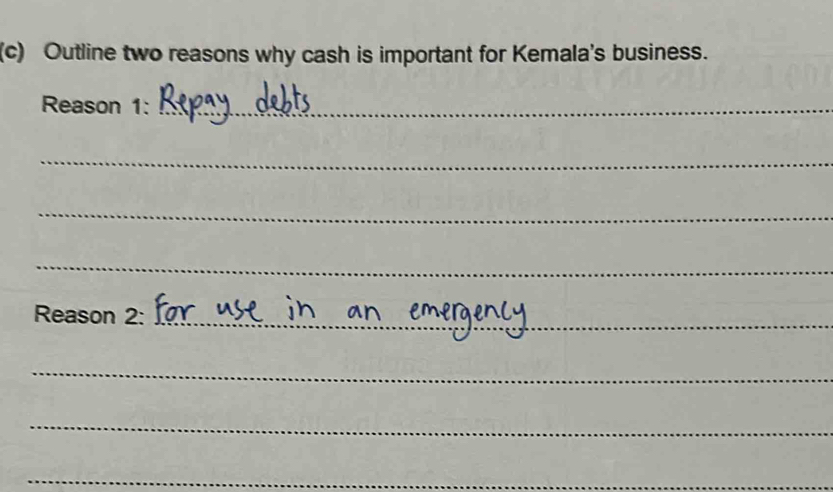 (c) Outline two reasons why cash is important for Kemala's business.
Reason 1: Repay debts
Reason 2: For use in an emergency